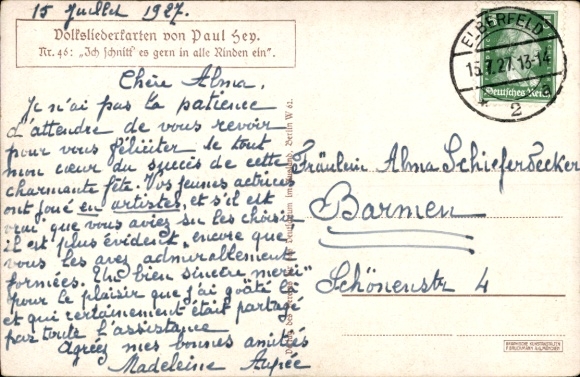 15 Juillet 1927.
Volksliederkarten von Paul Hey.
Nr. 46: „Ich schnitt es gern in alle Rinden ein".
Chère Alma,
Je n'ai pas la patience
d'attendre de vous revoir
pour vous féliciter de tout
mon cœur du succès de cette
charmante fête. Vos jeunes actrices
ont joué en artistes, et s'il est
vrai que vous aviez su les choisir
il est plus évident encore que
vous les avez admirablement
formées. Un bien sincère merci
pour le plaisir que j'ai goûté là
et qui certainement était partagé
par toute l'assistance
Agréez mes bonnes amitiés
Madeleine
ELBERFELD
15.7.27. 13-14
* 2
Deutsches Reich
Fräulein Alma Schieferdecker
Barmen
Schönenstr 4
Berlin W 62.